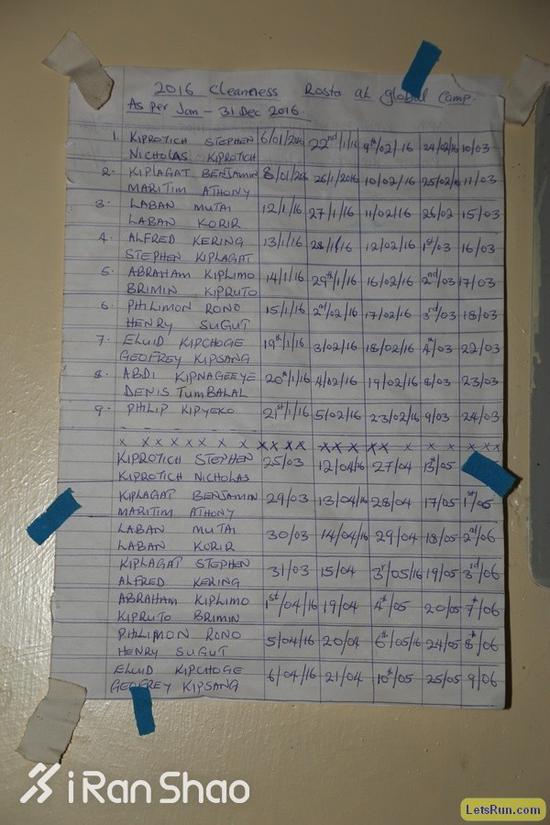 2016 Cleanness Rosta at global Camp.
As Per Jan - 31 Dec 2016.
1. KIPROTICH STEPHEN 6/01/2016 22nd/1/16 9th/02/16 24/02/16 10/03
NICHOLAS KIPROTICH
2. KIPLAGAT BENJAMIN 8/01/206 26/1/2016 10/02/16 25/02/16 11/03
MARITIM ATHONY
3. LABAN MUTAI 12/1/16 27/1/16 11/02/16 26/02 15/03
LABAN KORIR
4. ALFRED KERING 13/1/16 28/1/16 12/02/16 1st/03 16/03
STEPHEN KIPLAGAT
5. ABRAHAM KIPLIMO 14/1/16 29th/1/16 16/02/16 2nd/03 17/03
BRIMIN KIPRUTO
6. PHILIMON RONO 15/1/16 2nd/02/16 17/02/16 3rd/03 18/03
HENRY SUGUT
7. ELUID KIPCHOGE 19th/1/16 3/02/16 18/02/16 4th/03 22/03
GEOFREY KIPSANG
8. ABDI KIPNAGEEYE 20th/1/16 4/02/16 19/02/16 8/03 23/03
DENIS TUMBALAL
9. PHILIP KIPYEKO 21st/1/16 5/02/16 23/02/16 9/03 24/03
x x x x x x x x x x x x x x x x x x x x
KIPROTICH STEPHEN 25/03 12/04/16 27/04 13th/05
KIPROTICH NICHOLAS
KIPLAGAT BENJAMIN 29/03 13/04/16 28/04 17/05 1st/05
MARITIM ATHONY
LABAN MUTAI 30/03 14/04/16 29/04 18/05 2nd/06
LABAN KORIR
KIPLAGAT STEPHEN 31/03 15/04 3rd/05/16 19/05 3rd/06
ALFRED KERING
ABRAHAM KIPLIMO 1st/04/16 19/04 4th/05 20/05 7th/06
KIPRUTO BRIMIN
PHILIMON RONO 5/04/16 20/04 6th/05/16 24/05 8th/06
HENRY SUGUT
ELUID KIPCHOGE 6/04/16 21/04 10th/05 25/05 9/06
GEOFREY KIPSANG
iRanShao
LetsRun.com